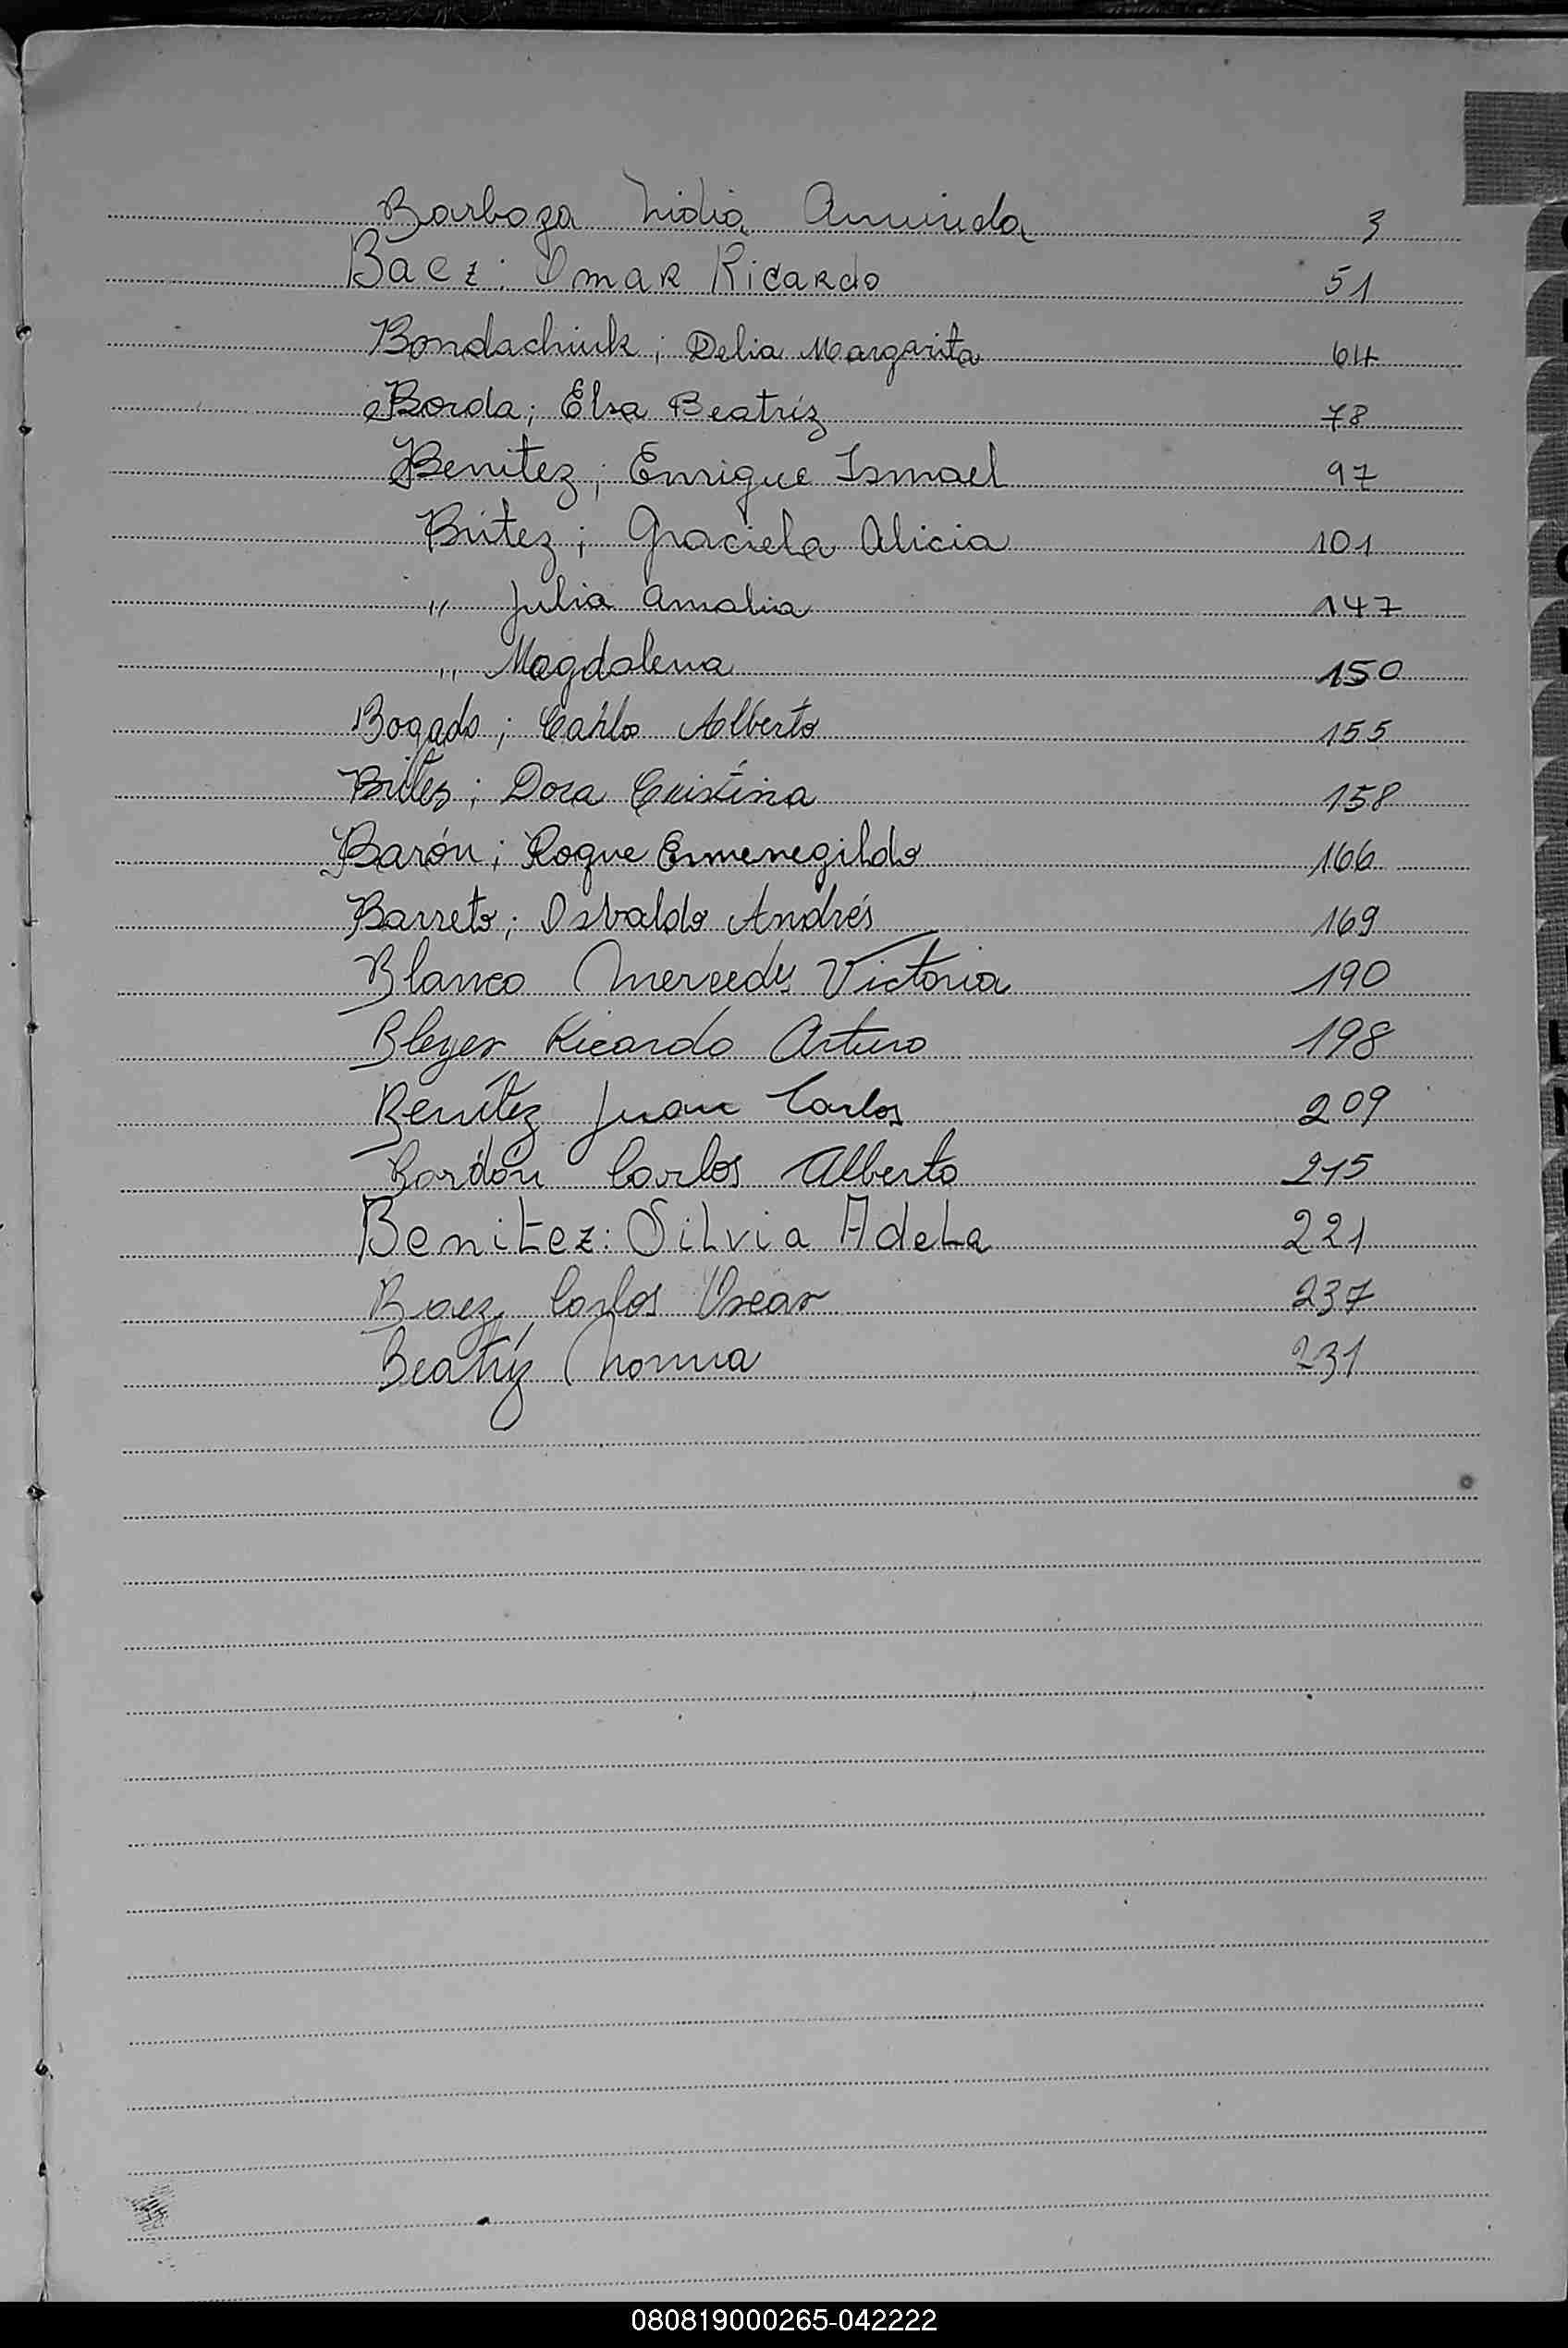 Barboza Lidia Arminda 3
Baez: Omar Ricardo 51
Bondachiuk; Delia Margarita 64
Borda; Elsa Beatríz 78
Benitez; Enrique Ismael 97
Britez; Graciela Alicia 101
" Julia Amalia 147
" Magdalena 150
Bogado; Carlo Alberto 155
Britez; Dora Cristina 158
Barón; Roque Ermenegildo 166
Barreto; Osvaldo Andrés 169
Blanco Mercedes Victoria 190
Bleyer Ricardo Arturo 198
Benítez Juan Carlos 209
Bordón Carlos Alberto 215
Benitez: Silvia Adela 221
Baez, Carlos Oscar 237
Beatríz Norma 231
080819000265-042222